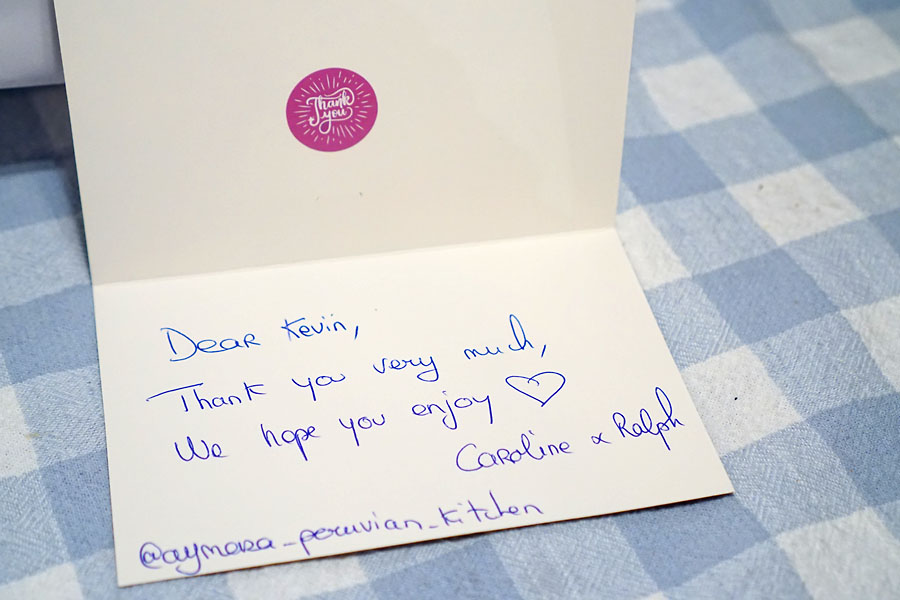 Thank
you
Dear Kevin,
Thank you very much,
We hope you enjoy ♡
Caroline & Ralph
@aymara_peruvian_kitchen